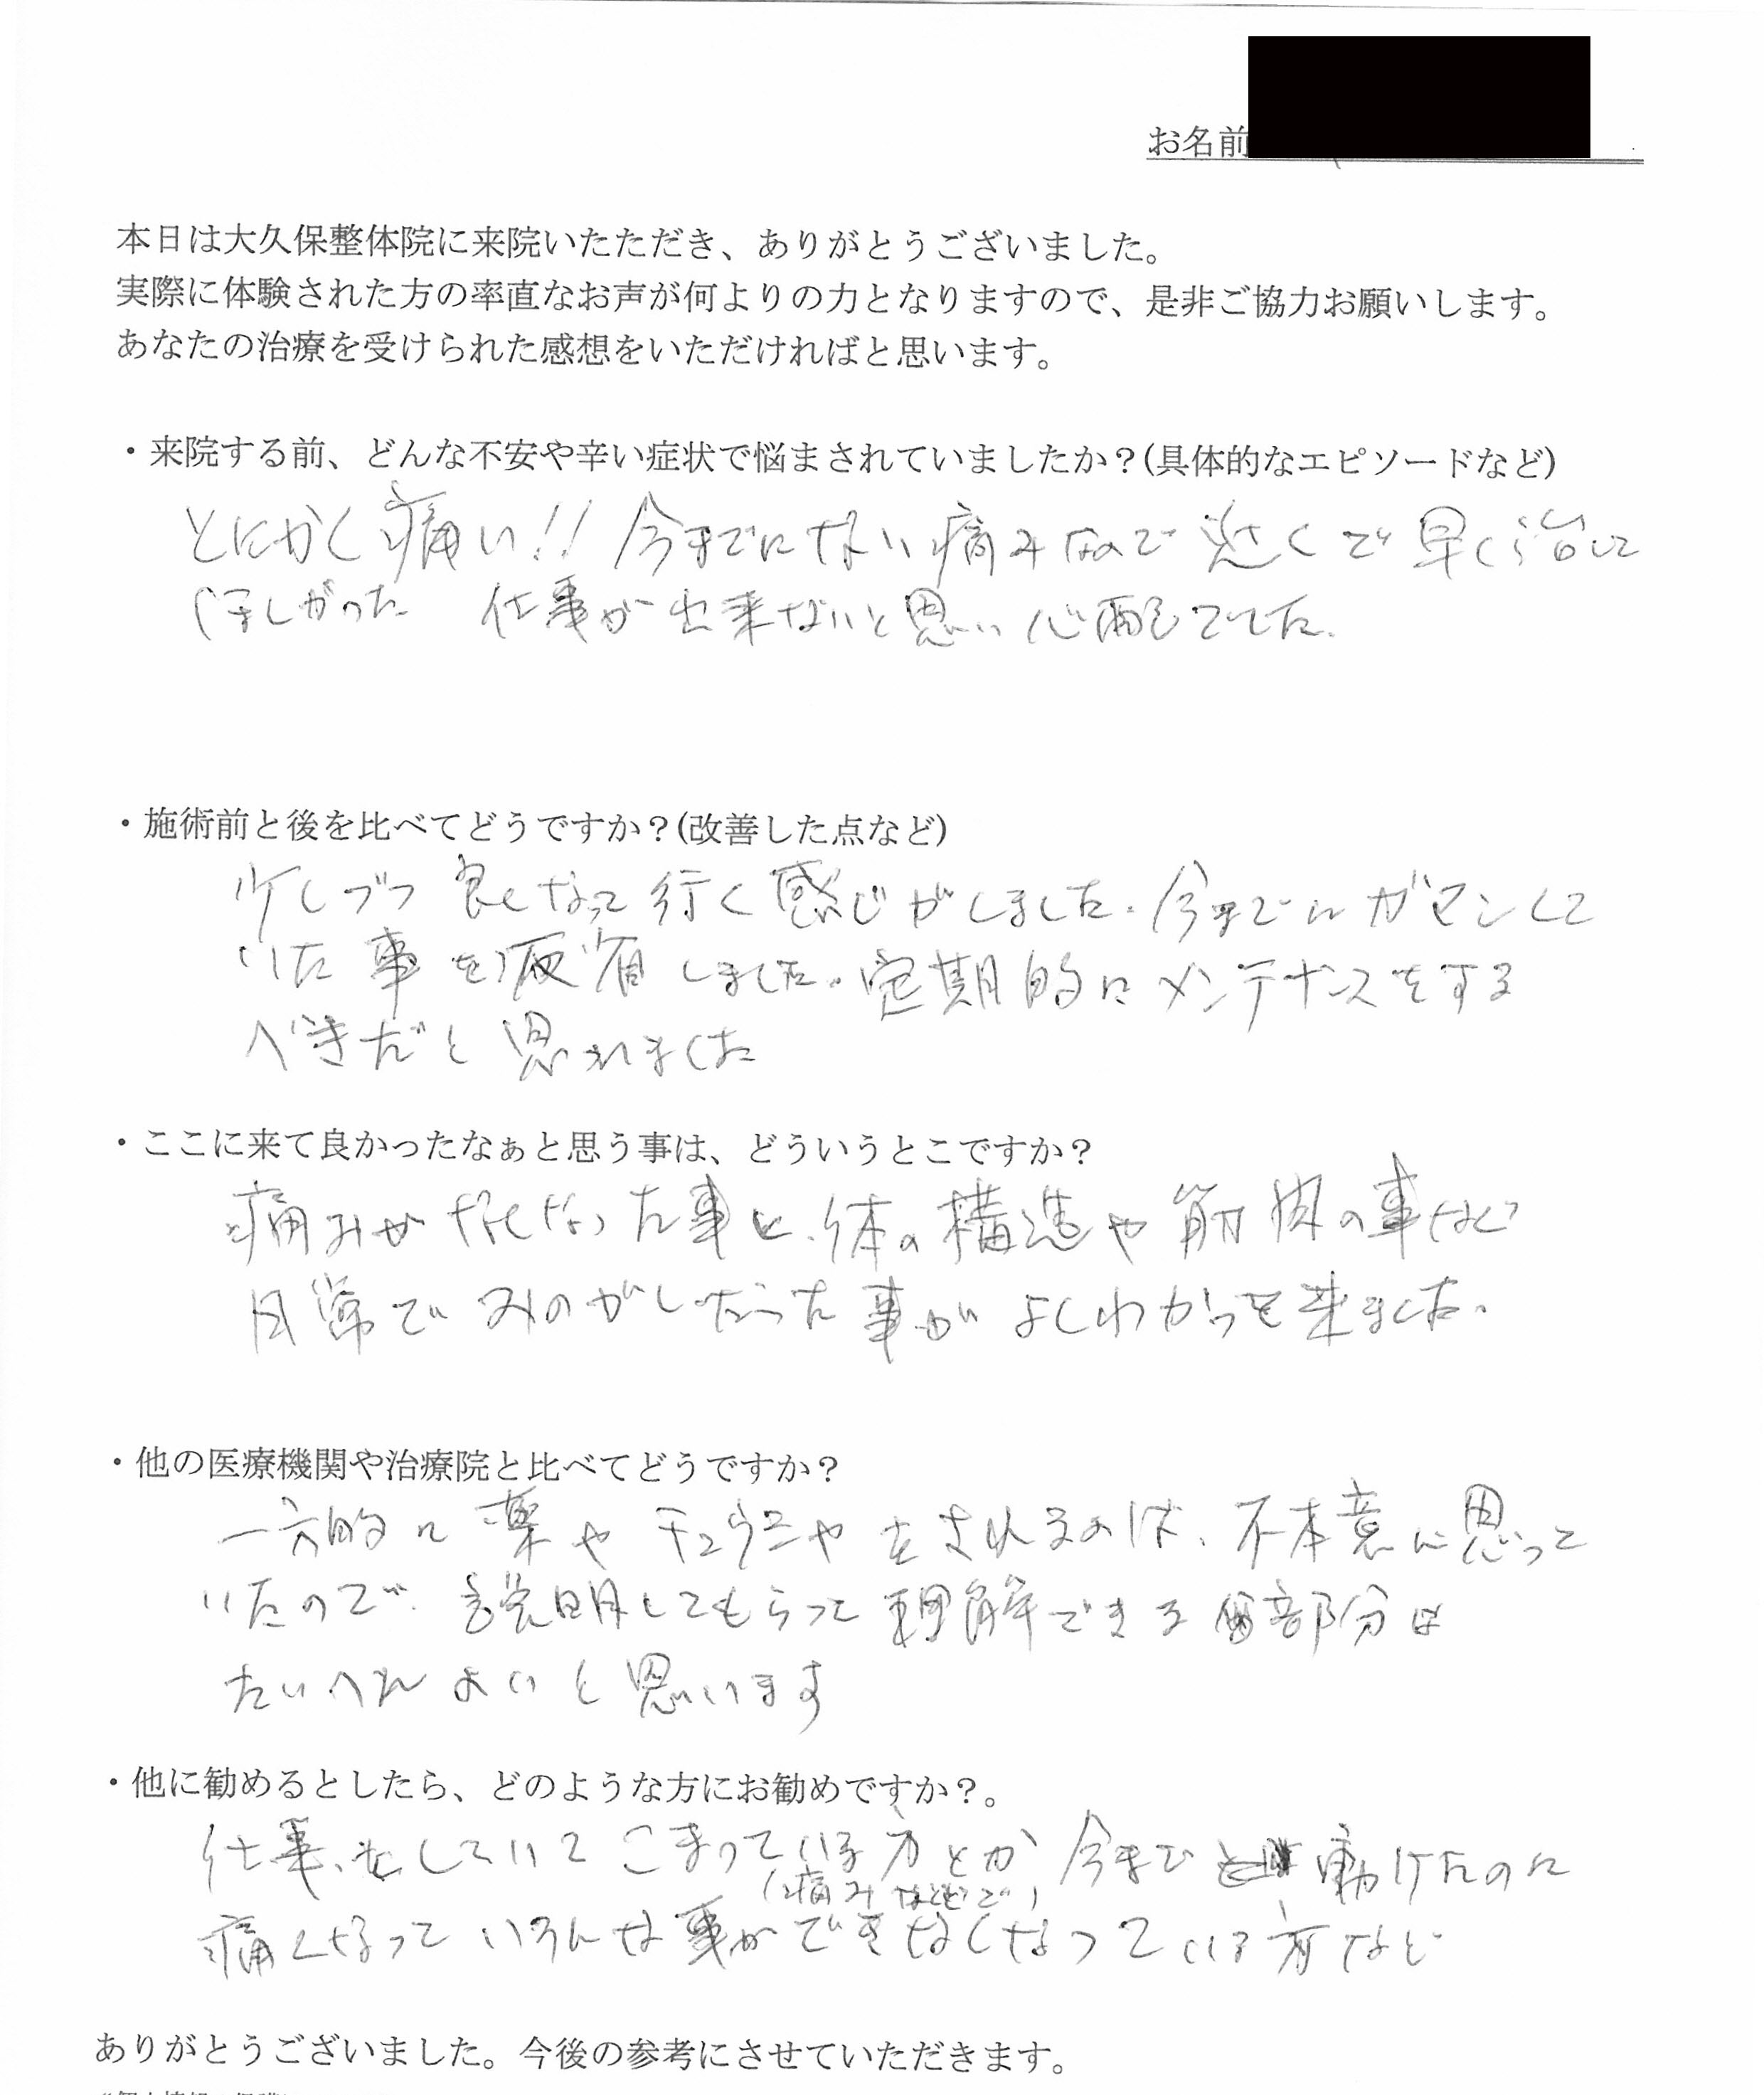 お名前
本日は大久保整体院に来院いたただき、ありがとうございました。
実際に体験された方の率直なお声が何よりの力となりますので、是非ご協力お願いします。
あなたの治療を受けられた感想をいただければと思います。
・来院する前、どんな不安や辛い症状で悩まされていましたか？(具体的なエピソードなど)
とにかく痛い!! 今までにない痛みなので 近くで早く治して
ほしがった 仕事が出来ないと思い心配してた.
・施術前と後を比べてどうですか？(改善した点など)
少しづつ 良くなって行く感じがしました. 今までにガマンして
いた事を反省しました. 定期的にメンテナンスをする
べきだと思われました
・ここに来て良かったなぁと思う事は、どういうとこですか？
痛みがなくなった事と、体の構造や筋肉の事など
日常でみのがしたった事がよくわかって来ました.
・他の医療機関や治療院と比べてどうですか？
一方的に薬や をされるのは、不本意に思って
いたので. 説明してもらって理解できる部分は
たいへん よいと思います
・他に勧めるとしたら、どのような方にお勧めですか？。
仕事をしていてこまっている方とか 今まで 動けたのに
(痛みなどで)
痛くなって いろんな事ができなくなっている方など
ありがとうございました。今後の参考にさせていただきます。